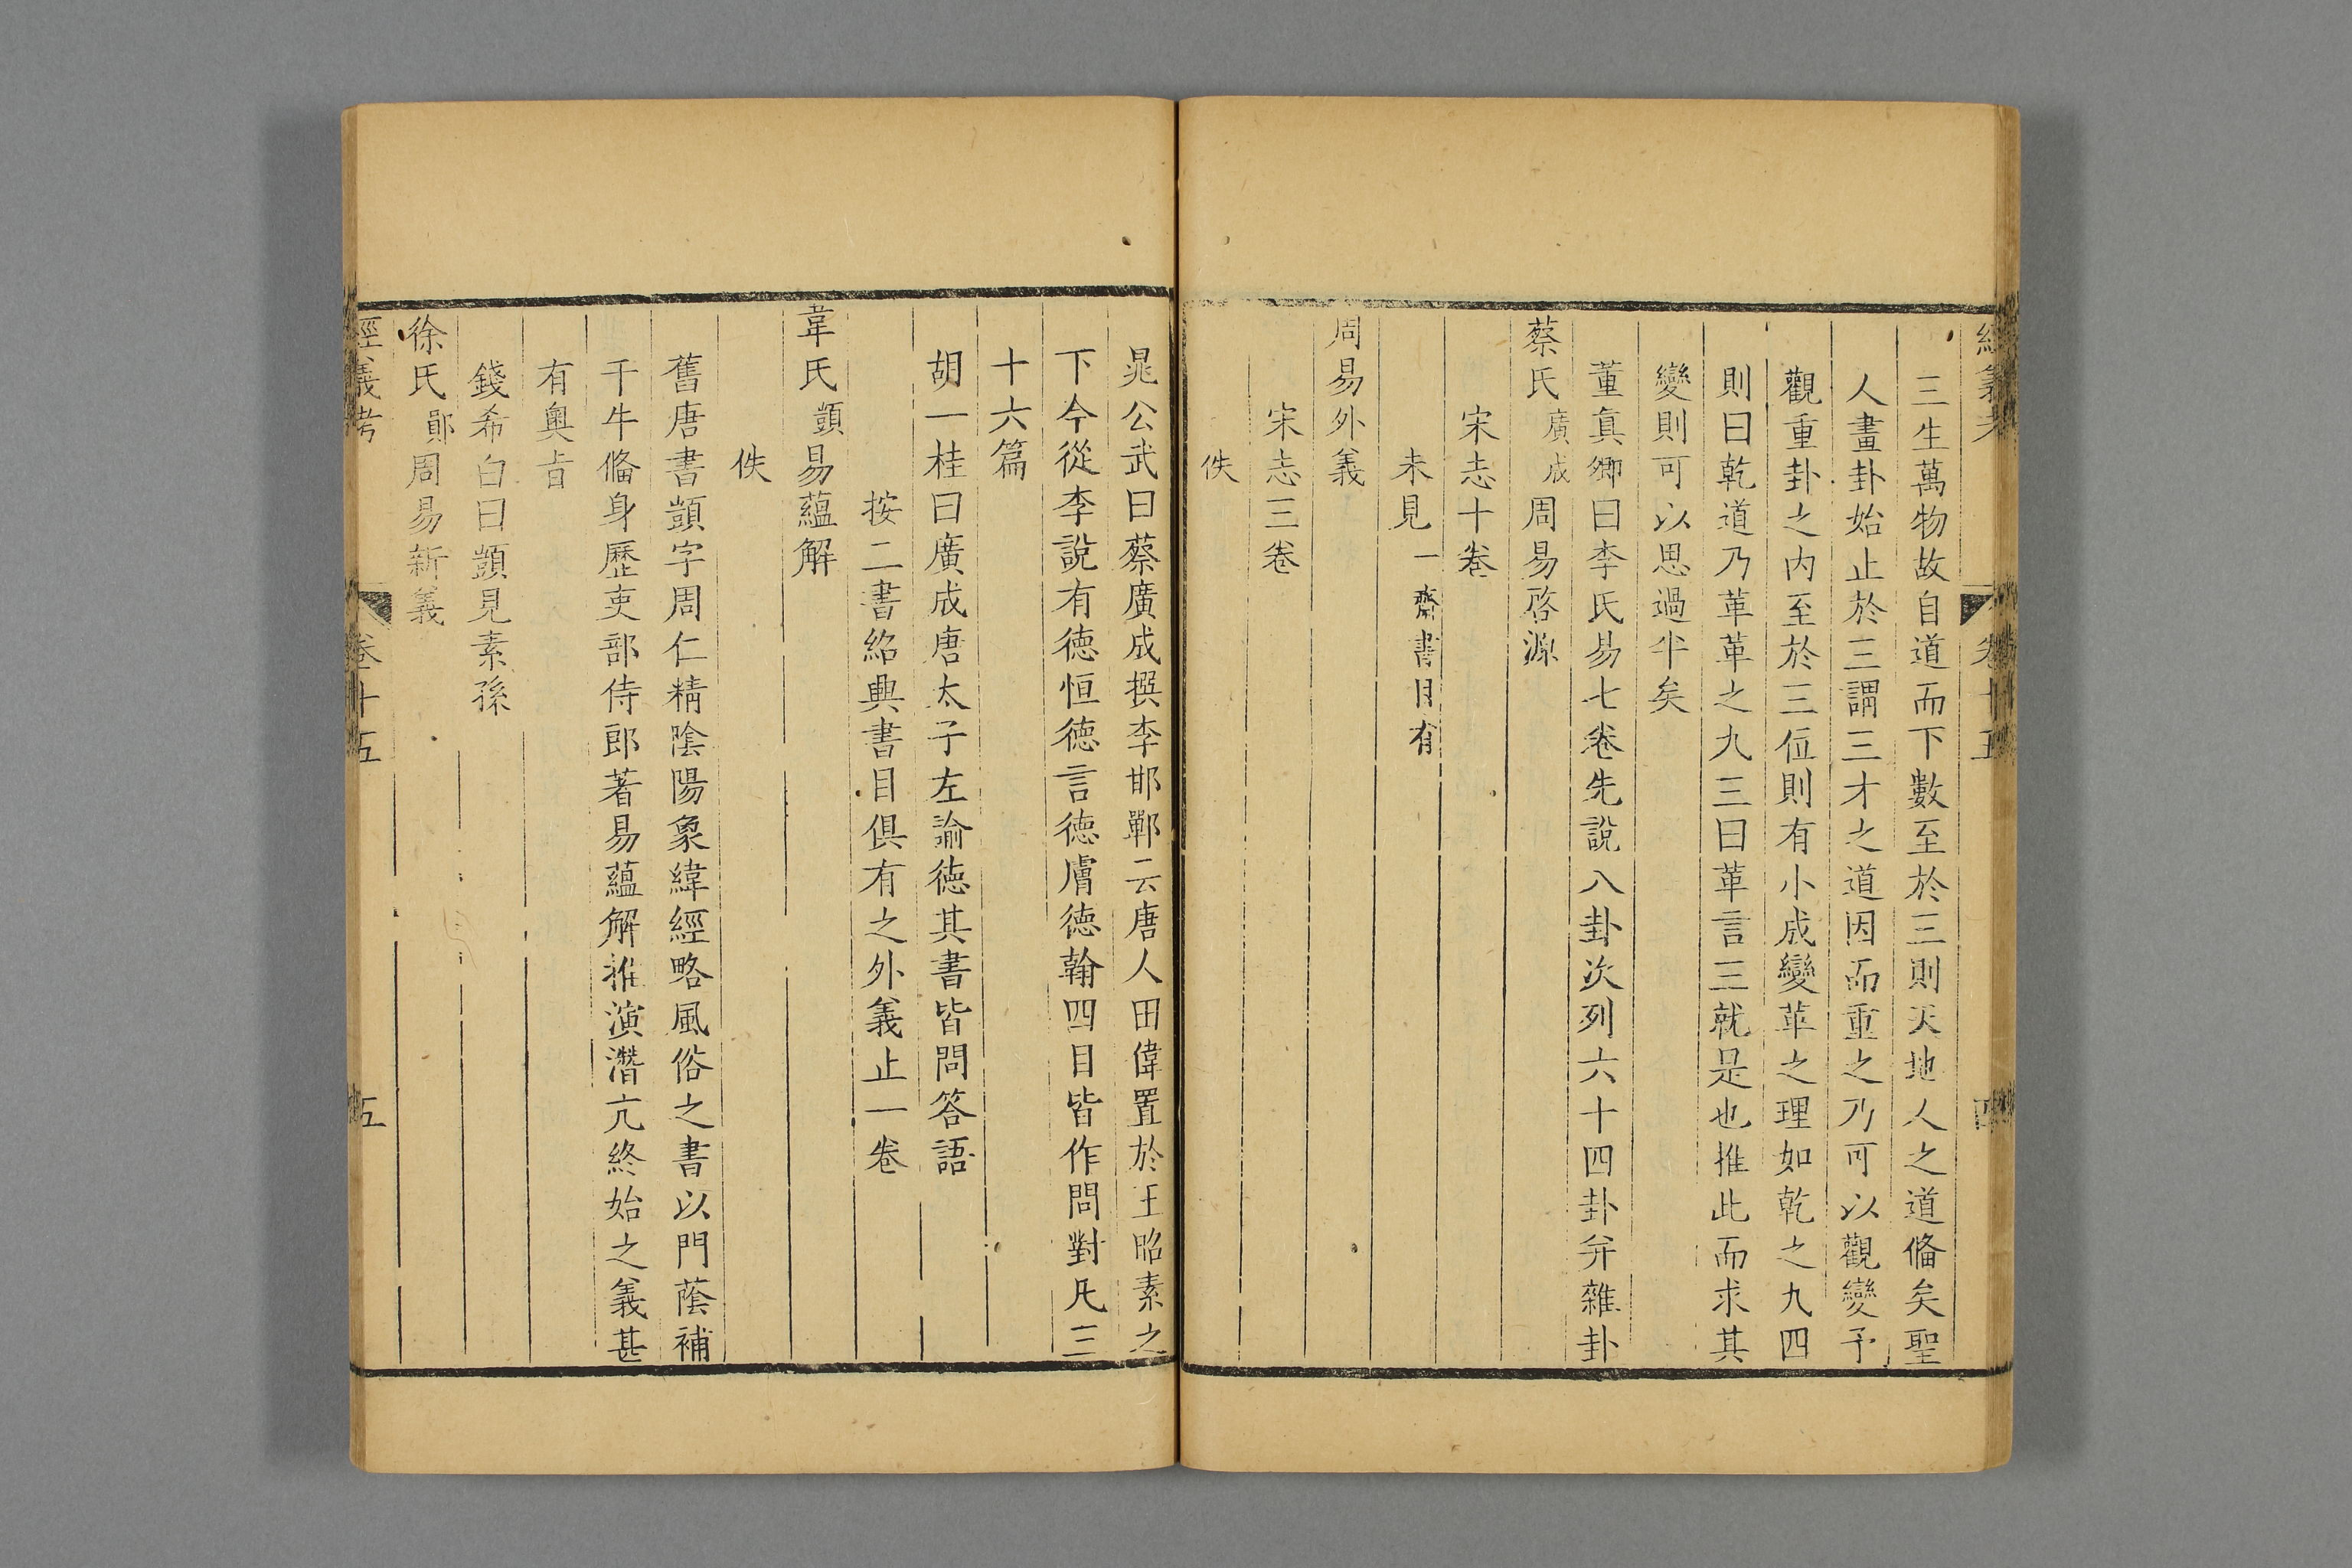 經義考 卷十五 四
三生萬物故自道而下數至於三則天地人之道俻矣聖
人畫卦始止於三謂三才之道因而重之乃可以觀變予
觀重卦之内至於三位則有小成變革之理如乾之九四
則曰乾道乃革革之九三曰革言三就是也推此而求其
變則可以思過半矣
董真卿曰李氏易七卷先說八卦次列六十四卦并雜卦
蔡氏廣成周易啓源
宋志十卷
未見一齋書目有
周易外義
宋志三卷
佚
晁公武曰蔡廣成撰李邯鄲云唐人田偉置於王昭素之
下今從李說有德恒德言德膚德翰四目皆作問對凡三
十六篇
胡一桂曰廣成唐太子左諭德其書皆問答語
按二書紹興書目俱有之外義止一卷
韋氏顗易蘊解
佚
舊唐書顗字周仁精陰陽象緯經略風俗之書以門蔭補
千牛俻身歷吏部侍郎著易蘊解推演潛亢終始之義甚
有奧旨
錢希白曰顗見素孫
徐氏鄖周易新義
經義考 卷十五 五